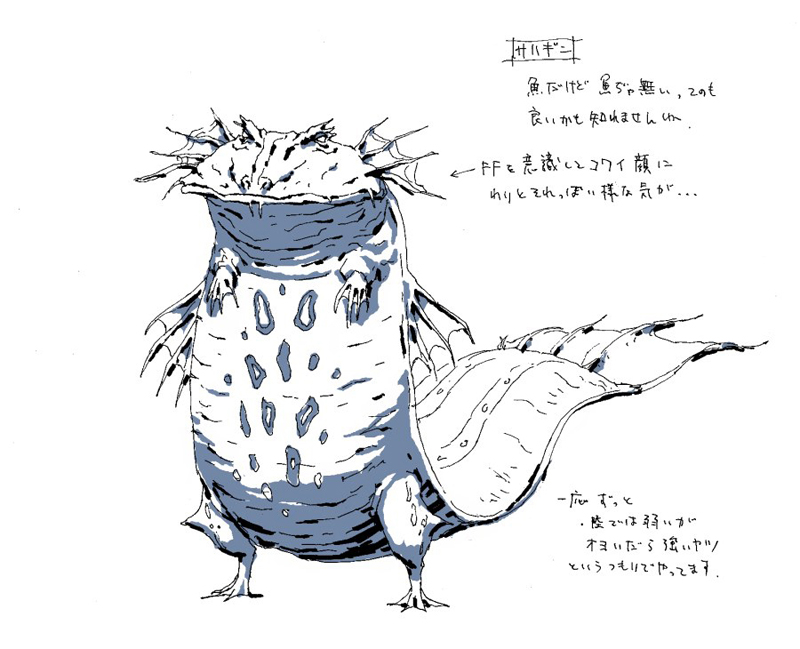 サハギン
魚だけど 魚ぢゃ無い、てのも
良いかも知れませんね。
←FFを意識してコワイ顔に
わりとそれっぽい様な気が...
一応ずっと
・陸では弱いが
オヨいだら強いヤツ
というつもりでやってます。